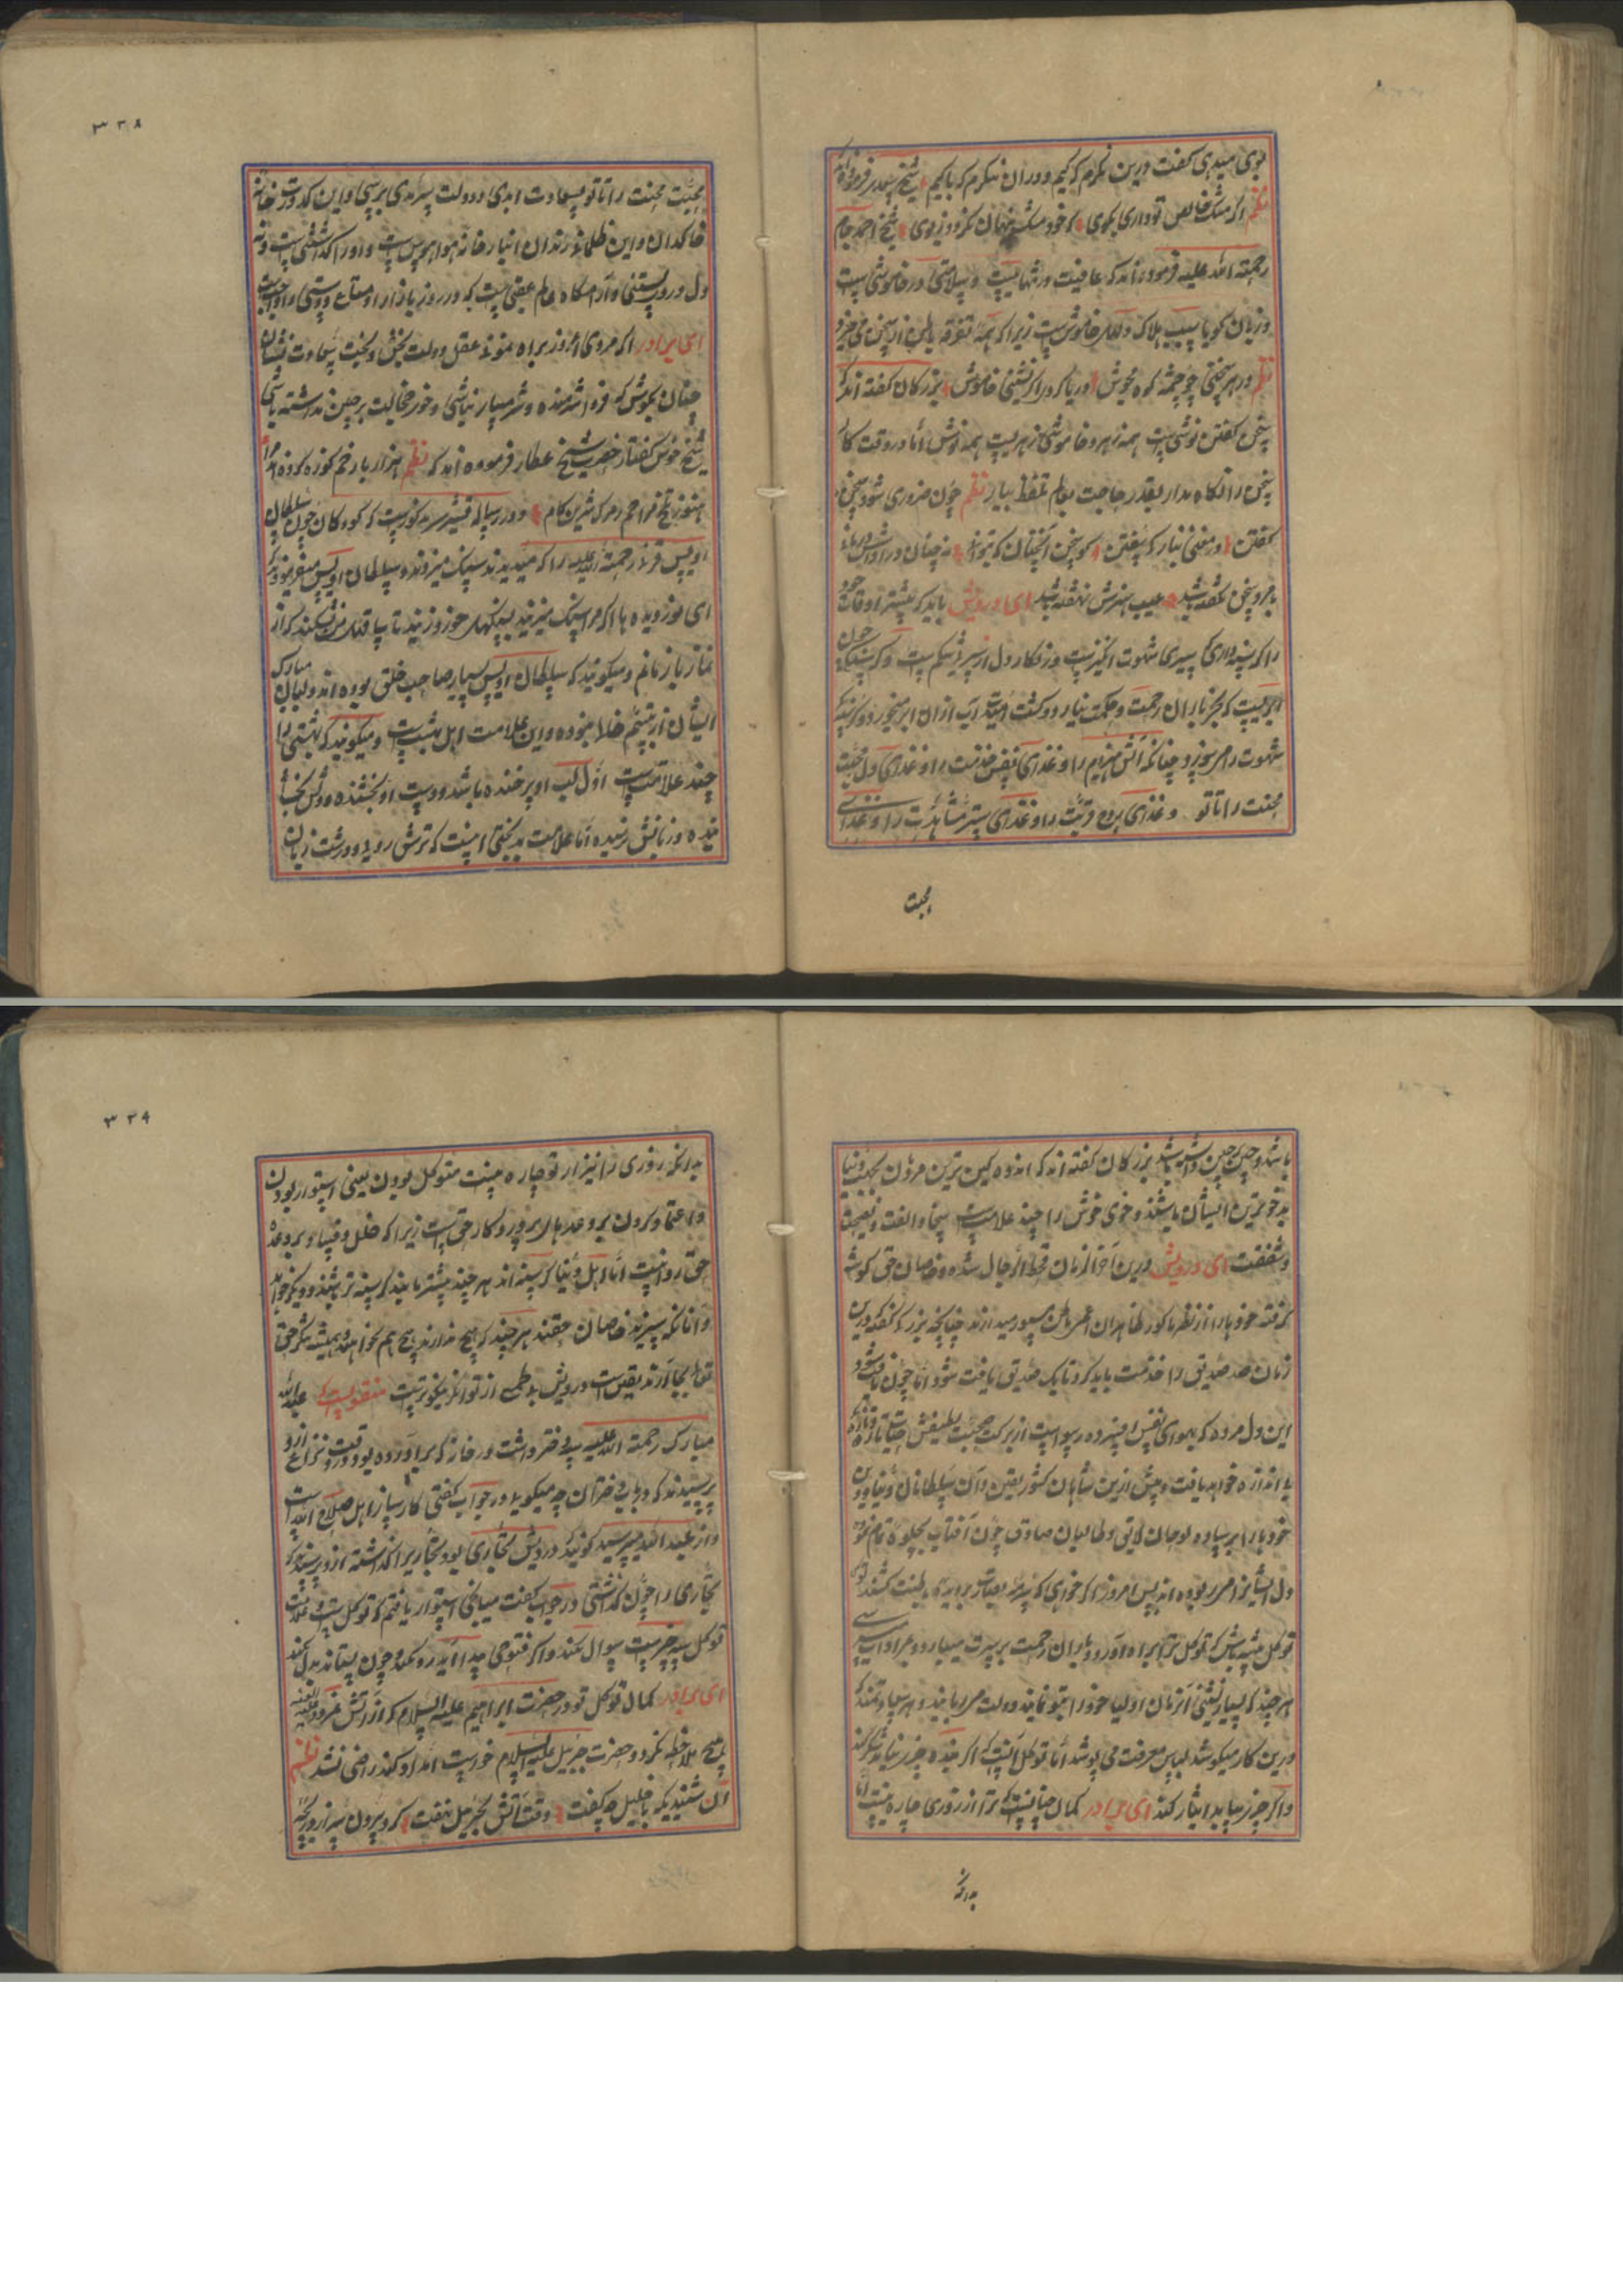 بوی میدهی گفت درین نکرم که کیم و در آن نکرم که با کیم شیخ
نظم اگر مشک خالص تو داری مگوی که خود مشک پنهان نگردد ز بوی شیخ احمد جام
رحمته الله علیه فرموده اند که عافیت در تنهاییست و سلامتی در خاموشی است
و زبان گویا سبب هلاک زیرا که همه تفرقه باطن از سخن می خیزد
نظم در هر سخنی چو چشمه کوه مجوش دریا گردی اگر نشینی خاموش بزرگان گفته اند که
سخن گفتن همه زهر و خاموشی همه نوش اما در وقت کار
سخن را نگاه مدار بقدر حاجت بعالم تلفظ بیار نظم چون ضروری شود سخن
گفتن در معنی بیار که سفتن گو سخن آنچنان که بتوانی نه چنان در
مرد سخن نگفته باشد عیب و هنرش نهفته باشد ای درویش باید که بیشتر اوقات خود
را گرسنه داری سیری شهوت انگیز است
ابریست که بجز باران رحمت و حکمت نیارد و کشت آب از آن ابر میخورد و گرسنگی
شهوت را می سوزد چنانکه آتش هیزم را و غذای نفس خدمت را و غذای دل محبت
محنت را تا تو و غذای روح قربت را و غذای سر مشاهدت را و غذای
محبت
۳۲۸
محبت محنت را تا تو بسعادت ابدی و دولت سرمدی برسی و این کدورت خانه
خاکدان و این ظلمانی زندان انبار خانه هوا و هوس است و او را گذاشتنی است و نه
دل درو بستنی و آرامگاه عالم عقبی است که در روز بازار او متاع دوستی را
ای برادر اگر مردی امروز براه نمونی عقل دولت بخش و بخت سعادت نشان
چنان بکوش که فردا شرمنده و شرمسار نباشی و خوی خجالت بر جبین نداشته باشی
شیخ خوش گفتار حضرت شیخ عطار فرموده اند که نظم هزار بار خم کوزه کرده اند مرا
هنوز تلخ مزاجم ز مرگ شیرین کام و در رساله قشیریه مذکور است که کودکان چون سلطان
اویس قرنی رحمته الله علیه را که میدیدند سنگ میزدند و سلطان اویس میفرمودند که
ای نور دیده ها اگر مرا سنگ میزنید سنگهای خورد زنید تا ساقهای من نشکند که از
نماز باز مانم و میگویند که سلطان اویس بسیار صاحب خلق بوده اند و لبان مبارک
ایشان از تبسم خالی نبوده و این علامت اهل بهشت است و میگویند که بهشتی را
چند علامتست اول لب او پر خنده باشد و دست او بخشنده و دلش بخشا
ینده و زبانش اما علامت بدبختی اینست که ترش روی و درشت زبان
باشد و چین بر جبین داشته باشد بزرگان گفته اند که اندوهگین ترین مردمان بجهت دنیا
بدخوترین ایشان باشند و خوی خوش را چند علامت است سخا و الفت و نصیحت
و شفقت ای درویش درین آخر زمان قحط الرجال شده و خاصان حق گوشه
گرفته خود را از نظر ما کور ظاهران مستور میدارند چنانچه بزرگی گفته درین
زمان صد صدیق را خدمت باید کرد تا یک صدیق یافت شود اما چون یافت شود
این دل مرده که بهوای نفس افسرده رسوا است از برکت صحبت لطیفش حیات تازه
بی اندازه خواهد یافت و پیش ازین شاهان کشور یقین و آن سلطانان دنیا و دین
خود را بر ساده لوحان لایق و طالبان صادق چون آفتاب بجلوه تمام نموده
دل ایشانرا می ربوده اند پس امروز اگر خواهی که
توکل پیشه باش که توکل ترا براه آورد و باران رحمت بر سرت میبارد
هر چند که بسیار نشینی از زمان اولیا خود را بتو نمایند و دولت و هر سعادتمند که
درین کار میکوشد لباس معرفت می پوشد اما توکل آنست که اگر بنده چیز نیابد شکر کند
و اگر چیز بیابد ایثار کند ای برادر کمال چنانست که ترا از روزی چاره نیست اما
بدانکه
۳۲۹
بدانکه روزی را نیز از تو چاره نیست متوکل بودن یعنی استوار بودن
و اعتماد کردن بر وعدهای پروردگار حق است زیرا که خلل و فساد بر وعده
حق روا نیست اما اهل دنیا گرسنه اند هر چند بیشتر یابند گرسنه تر باشند و دیگر خواهند
و آنانکه سیرند خاصان حقند هر چند که هیچ ندارند هیچ هم نخواهند و همیشه شکر حق
تعالی بجا آرند یقین است درویش بی طمع از توانگر نیکوتر است منقولست که عبدالله
مبارک رحمته الله علیه دختر داشت در خانه که بر آورده بود و در وقت نزاع ازو
پرسیدند که در باب دختران چه میگویید در جواب گفتی کار ساز اهل صلاح الله است
و از عبدالله میپرسید گویند درویش نجاری بود نجاری را گذاشته ازو پرسیدند که
نجاری را چون گذاشتی در جواب گفت میانجی استوار یافتم که توکل است و علامت
توکل سه چیز است سوال نکند و اگر فتوحی پیدا آید رد نکند و چون بستاند بدل نکند
ای برادر کمال توکل تو در حضرت ابراهیم علیه السلام که از آتش نمرود
هیچ ملاحظه نکرد و حضرت جبریل علیه السلام خواست امداد کند راضی نشد نظم
آن شنیدی که با خلیل چه گفت وقت آتش بجبریل نهفت